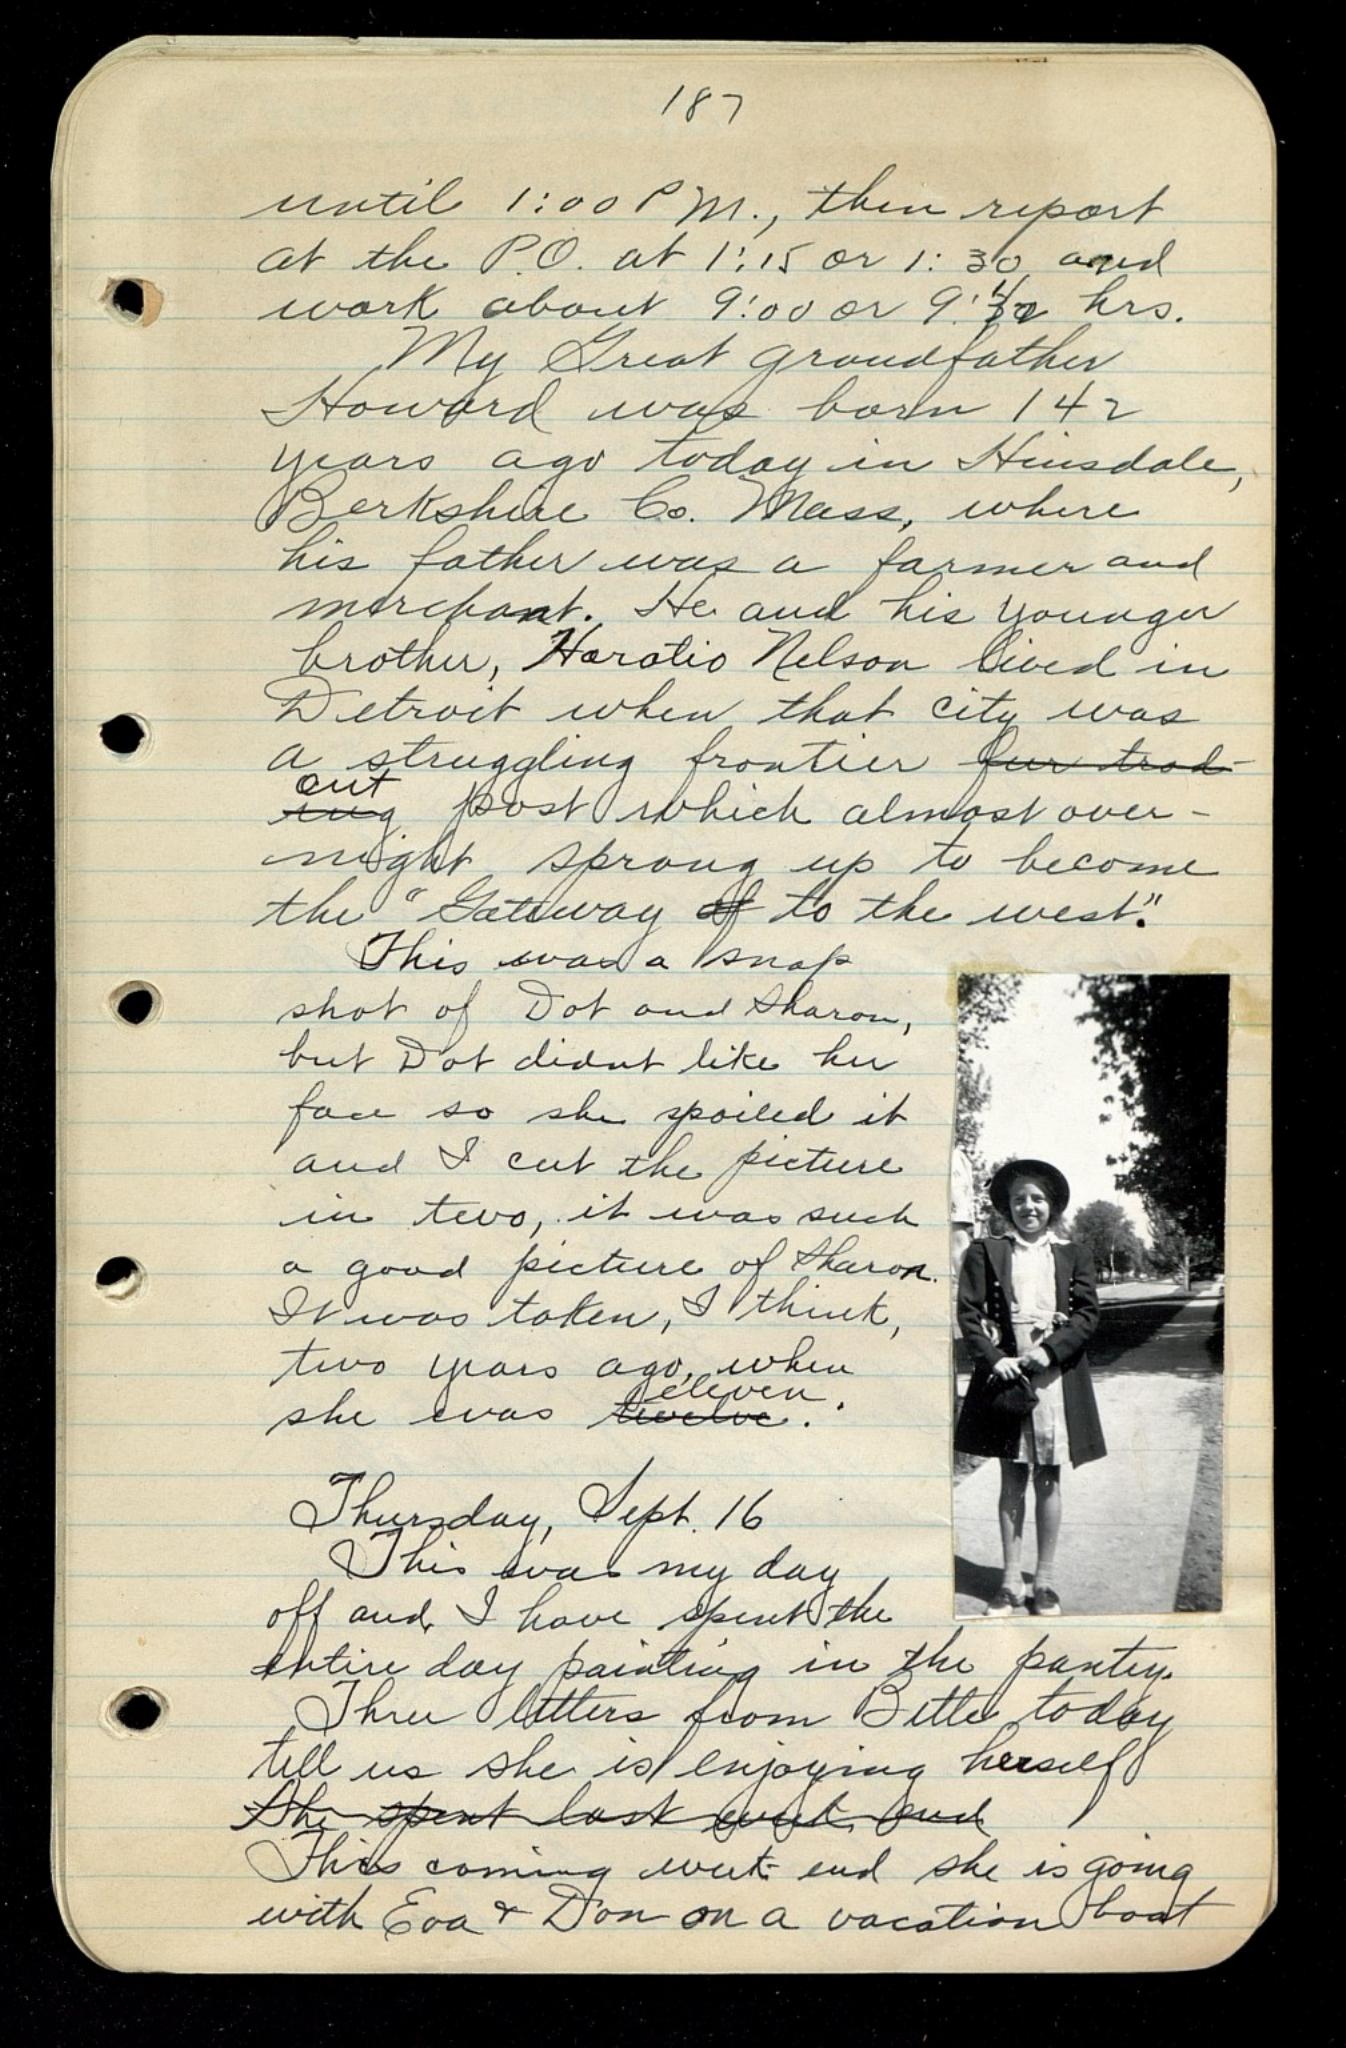 187
until 1:00 P.M., then report
at the P.O. at 1:15 or 1:30 and
work about 9:00 or 9:1/2 hrs.
My Great grandfather
Howard was born 142
years ago today in Hinsdale,
Berkshire Co. Mass, where
his father was a farmer and
merchant. He and his younger
brother, Horatio Nelson lived in
Detroit when that city was
a struggling frontier fur trad-
out
ing post which almost over-
night sprang up to become
the "Gateway of to the west".
This was a snap
shot of Dot and Sharon,
but Dot didnt like her
face so she spoiled it
and I cut the picture
in two, it was such
a good picture of Sharon.
It was taken, I think,
two years ago, when
eleven.
she was twelve.
Thursday, Sept. 16
This was my day
off and I have spent the
entire day painting in the pantry.
Three letters from Bette today
tell us she is enjoying herself
She spent last week end
This coming week-end she is going
with Eva & Don on a vacation boat